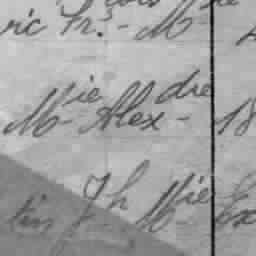 ric Fr.s - M
Mie Alexdre - 18
tin J.h Mie Ex